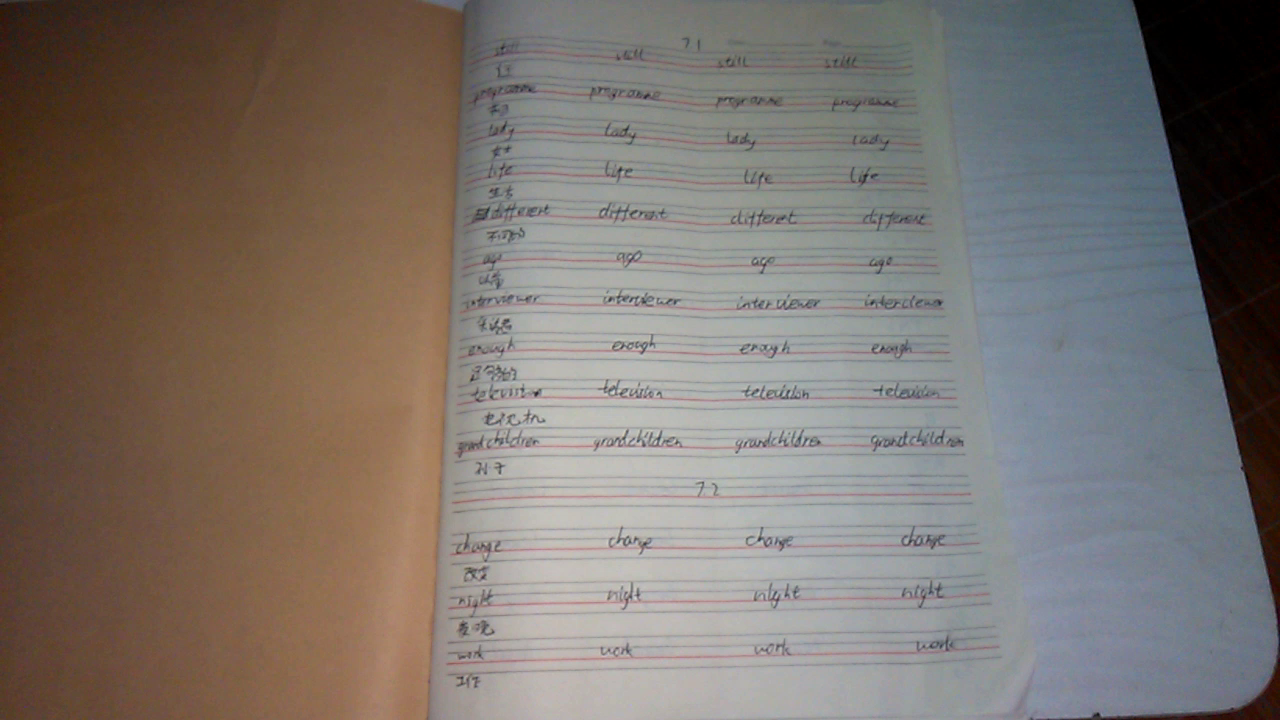 7.1
still still still still
programme programme programme programme
节目
lady lady lady lady
女士
life life life life
生活
different different differet different
不同的
ago ago ago ago
以前
interviewer interviewer interviewer interviewer
采访者
enough enough enough enough
足够的
television television television television
电视机
grandchildren grandchildren grandchildren grandchildren
孙子
7.2
change change change change
改变
night night night night
夜晚
work work work work
工作